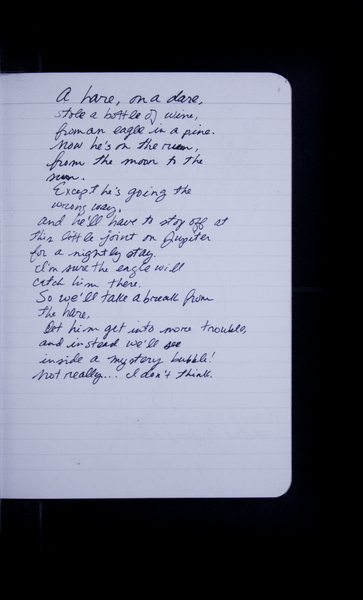 A hare, on a dare,
stole a bottle of wine,
from an eagle in a pine.
Now he's on the run,
from the moon to the
sun.
Except he's going the
wrong way,
and he'll have to stop off at
this little joint on Jupiter
for a nightly stay.
I'm sure the eagle will
catch him there.
So we'll take a break from
the hare,
let him get into more trouble,
and instead we'll see
inside a mystery bubble!
Not really... I don't think.